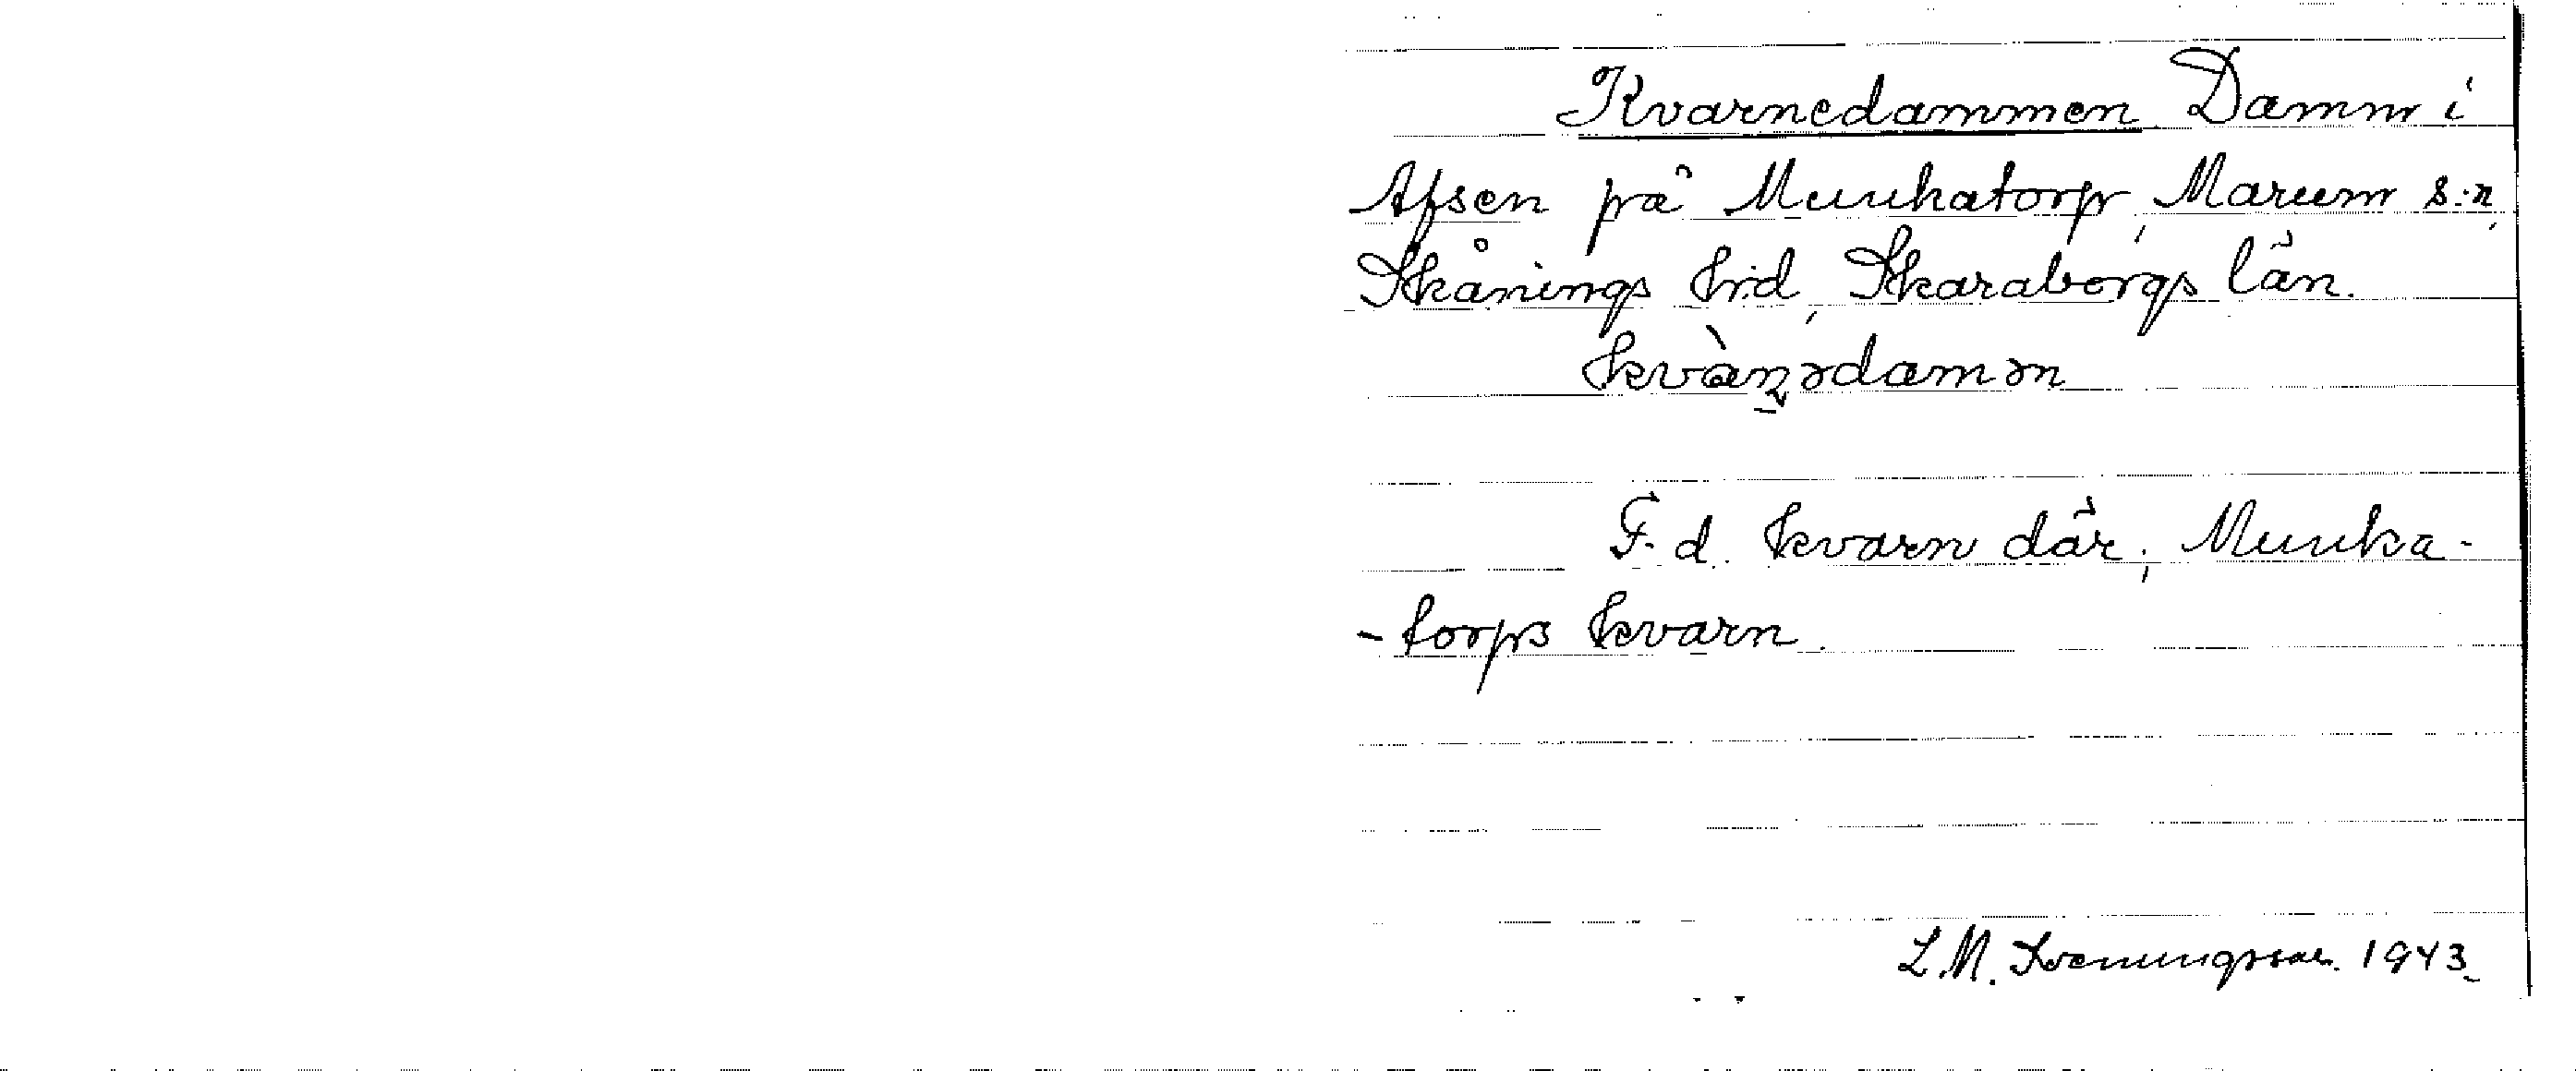 Kvarnedammen Damm i
Afsen på Munkatorp, Marum s:n,
Skånings hd, Skaraborgs län.
kvàn̠ədamən
F.d. kvarn där; Munka-
-torps kvarn.
L.M. Svenungsson. 1943.